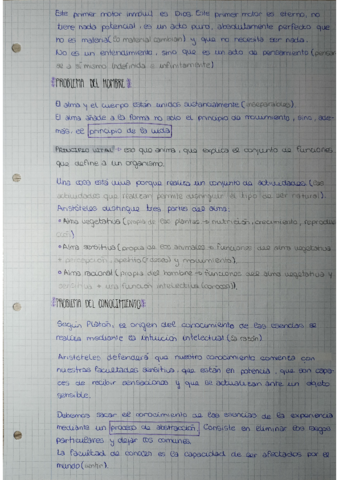 Este primer motor inmóvil es Dios. Este primer motor es eterno, no
tiene nada potencial, es un acto puro, absolutamente perfecto que
no es material (lo material cambia) y que no necesita ser nada.
No es un entendimiento, sino que es un acto de pensamiento (pensar
se a sí mismo indefinida e infinitamente)
PROBLEMA DEL HOMBRE
El alma y el cuerpo están unidos sustancialmente
El alma añade a la forma no solo el principio de movimiento, sino, ade-
más, el principio de la vida
que anima, que explica el conjunto de funciones
que define a un organismo.
Una cosa está viva porque realiza un conjunto de actividades (las
actividades que realizan permite distinguir la
Aristóteles distingue tres partes del alma:
Alma vegetativa (propia de las plantas = nutrición, crecimiento, reproduc
Alma sensitiva (propia de los animales = funciones del alma vegetativa
+ apetito (deseo) y movimiento).
Alma racional (propia del hombre = funciones del alma vegetativa y
sensitiva + una función intelectiva
PROBLEMA DEL CONOCIMIENTO
Según Platón, el origen del conocimiento de las esencias se
realiza mediante la intuición intelectual (la razón)
Aristóteles defenderá que nuestro conocimiento comienza con
nuestras facultades sensitivas, que están en potencia, que son capa-
ces de recibir sensaciones y que se actualizan ante un objeto
sensible.
Debemos sacar el conocimiento de las esencias de la experiencia
mediante un proceso de abstracción. Consiste en eliminar los rasgos
particulares y dejar los comunes.
La facultad de conocer es la capacidad de ser afectados por el
mundo (sentir).